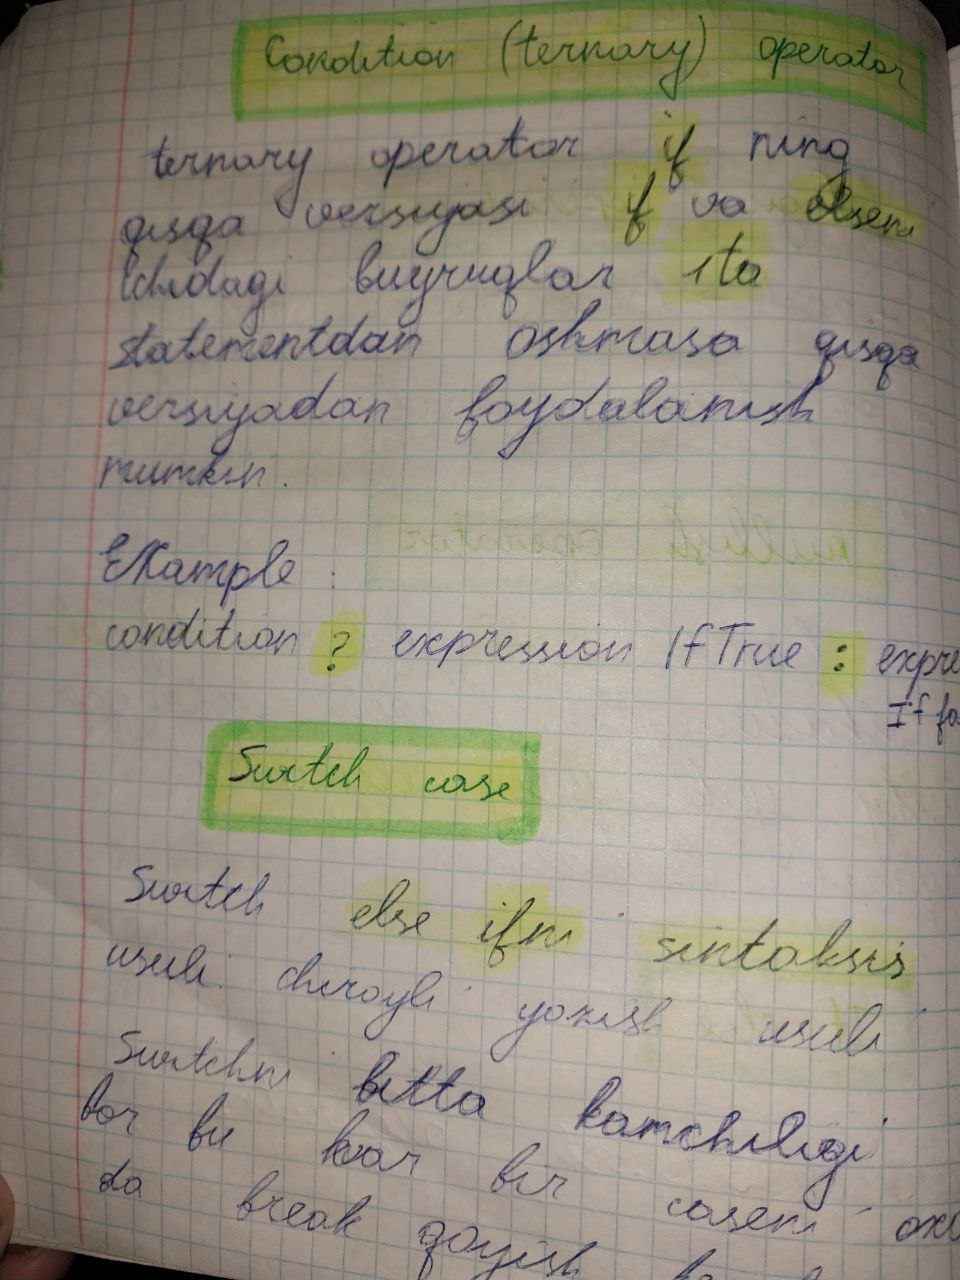 Condition (ternary) operator
ternary operator if ning
qisqa versiyasi if va elseni
Ichidagi buyruqlar 1ta
statementdan oshmasa qisqa
versiyadan foydalanish
mumkin.
Example :
condition ? expression IfTrue : expre
If fa
Switch case
Switch else ifni sintaksis
usuli chiroyli yozish usuli
Switchni bitta kamchiligi
bor bu har bir caseni oxi
da break qoyish